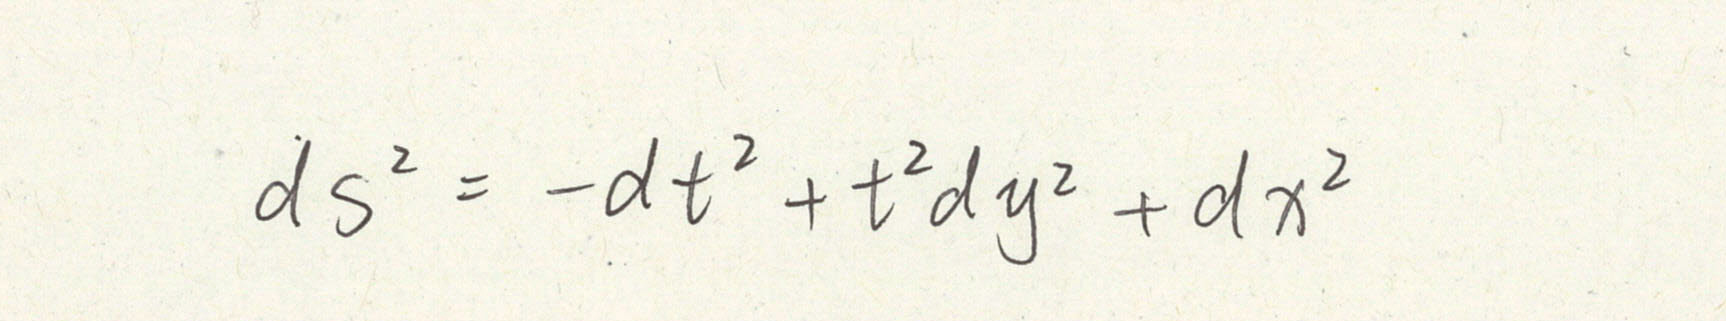 ds² = -dt² + t²dy² + dx²